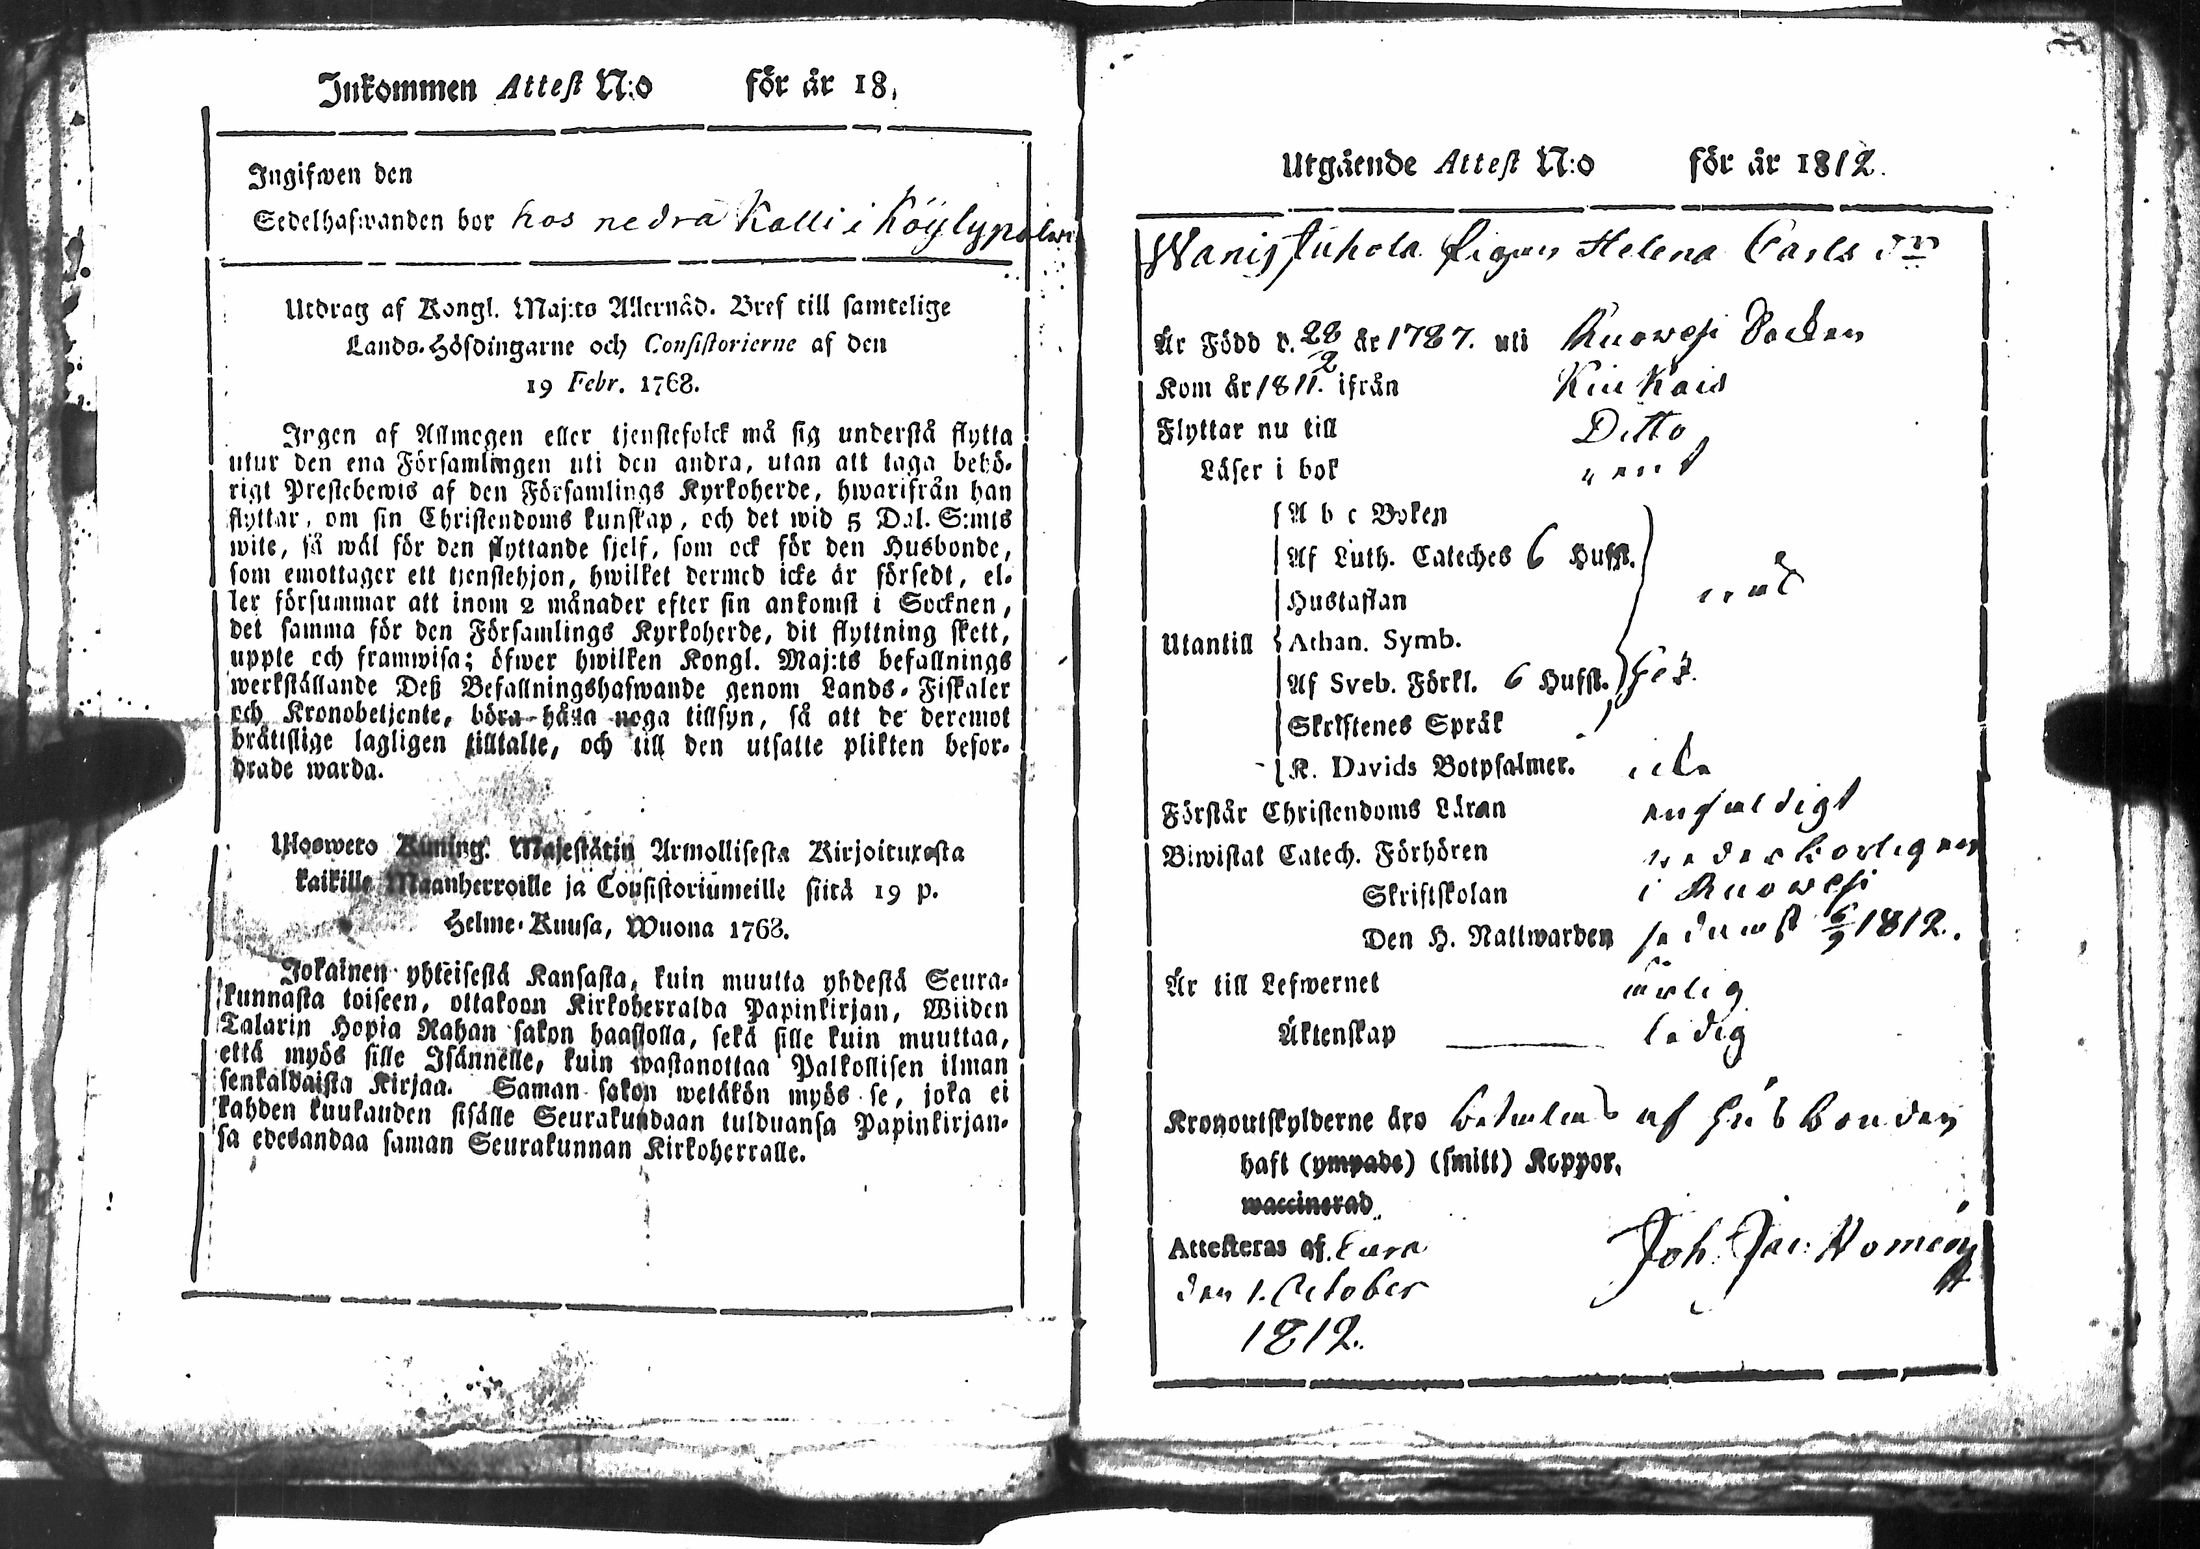 Inkommen Attest N:o för år 18
Ingifwen den
Sedelhafwanden bor hos nedra Kalli i Köylypolwi
Utdrag af Kongl. Maj:ts Allernåd. Bref till samtelige
Lands-Höfdingarne och Consistorierne af den
19 Febr. 1768.
Ingen af Allmogen eller tjenstefolck må sig understå flytta
utur den ena Församlingen uti den andra, utan att taga behö-
rigt Prestebewis af den Församlings Kyrkoherde, hwarifrån han
flyttar, om sin Christendoms kunskap, och det wid 5 Dal. S:mts
wite, så wäl för den flyttande sjelf, som ock för den Husbonde,
som emottager ett tjenstehjon, hwilket dermed icke är försedt, el-
ler försummar att inom 2 månader efter sin ankomst i Socknen,
det samma för den Församlings Kyrkoherde, dit flyttning skett,
uppte och framwisa; öfwer hwilken Kongl. Maj:ts befallnings
werkställande Deß Befallningshafwande genom Lands-Fiskaler
och Kronobetjente, böra hålla noga tillsyn, så att de deremot
bråttslige lagligen tilltalte, och till den utsatte plikten befor-
drade warda.
Uloswero Kuning. Majestätin Armollisesta Kirjoituxesta
kaikille Maanherroille ja Consistoriumeille siitä 19 p.
Helme-Kuusa, Wuona 1768.
Jokainen yhteisestä Kansasta, kuin muutta yhdestä Seura-
kunnasta toiseen, ottakoon Kirkoherralda Papinkirjan, Wiiden
Talarin Hopia Rahan sakon haastolla, sekä sille kuin muuttaa,
että myös sille Isännelle, kuin wastanottaa Palkollisen ilman
senkaldaista Kirjaa. Saman sakon wetäkön myös se, joka ei
kahden kuukauden sisälle Seurakundaan tulduansa Papinkirjan-
sa edesandaa saman Seurakunnan Kirkoherralle.
Utgående Attest N:o för år 1812.
Pigan Helena Carls dr
Är Född d. 28/2 år 1787. uti Ruowesi Socken
Kom år 1811. ifrån Kiukais
Flyttar nu till Ditto
Läser i bok rent
A b c Boken
Af Luth. Cateches 6 Hufst.
Hustaflan
Utantill Athan. Symb.
Af Sveb. Förkl. 6 Hufst.
Skriftenes Språk
K. Davids Botpsalmer. icke
Förstår Christendoms Läran enfaldigt
Biwistat Catech. Förhören wederborligen
Skriftskolan i Ruowesi
Den H. Nattwarden sednast 6/9 1812.
Är till Lefwernet ärlig
Äktenskap ledig
Kronoutskylderne äro betalas af Husbonden
haft (ympade) (smitt) Koppor.
waccinerad
Attesteras af. Eura Joh. Jac: Nomein
den 1. October
1812.